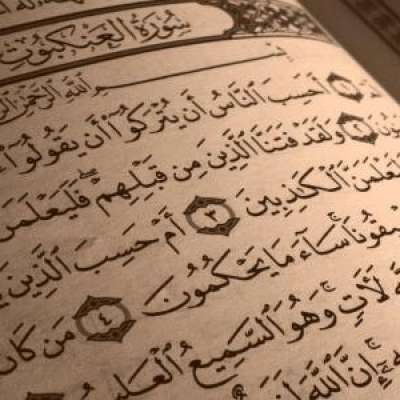 سُورَةُ العَنكَبُوتِ
بِسْمِ ٱللَّهِ ٱلرَّحْمَٰنِ
١ أَحَسِبَ ٱلنَّاسُ أَن يُتْرَكُوٓا۟ أَن يَقُولُوٓا۟
٢ وَلَقَدْ فَتَنَّا ٱلَّذِينَ مِن قَبْلِهِمْ ۖ فَلَيَعْلَمَنَّ
وَلَيَعْلَمَنَّ ٱلْكَٰذِبِينَ ٣ أَمْ حَسِبَ ٱلَّذِينَ
سَآءَ مَا يَحْكُمُونَ ٤ مَن كَانَ
لَءَاتٍ ۚ وَهُوَ ٱلسَّمِيعُ ٱلْعَلِيمُ
إِنَّ ٱللَّهَ